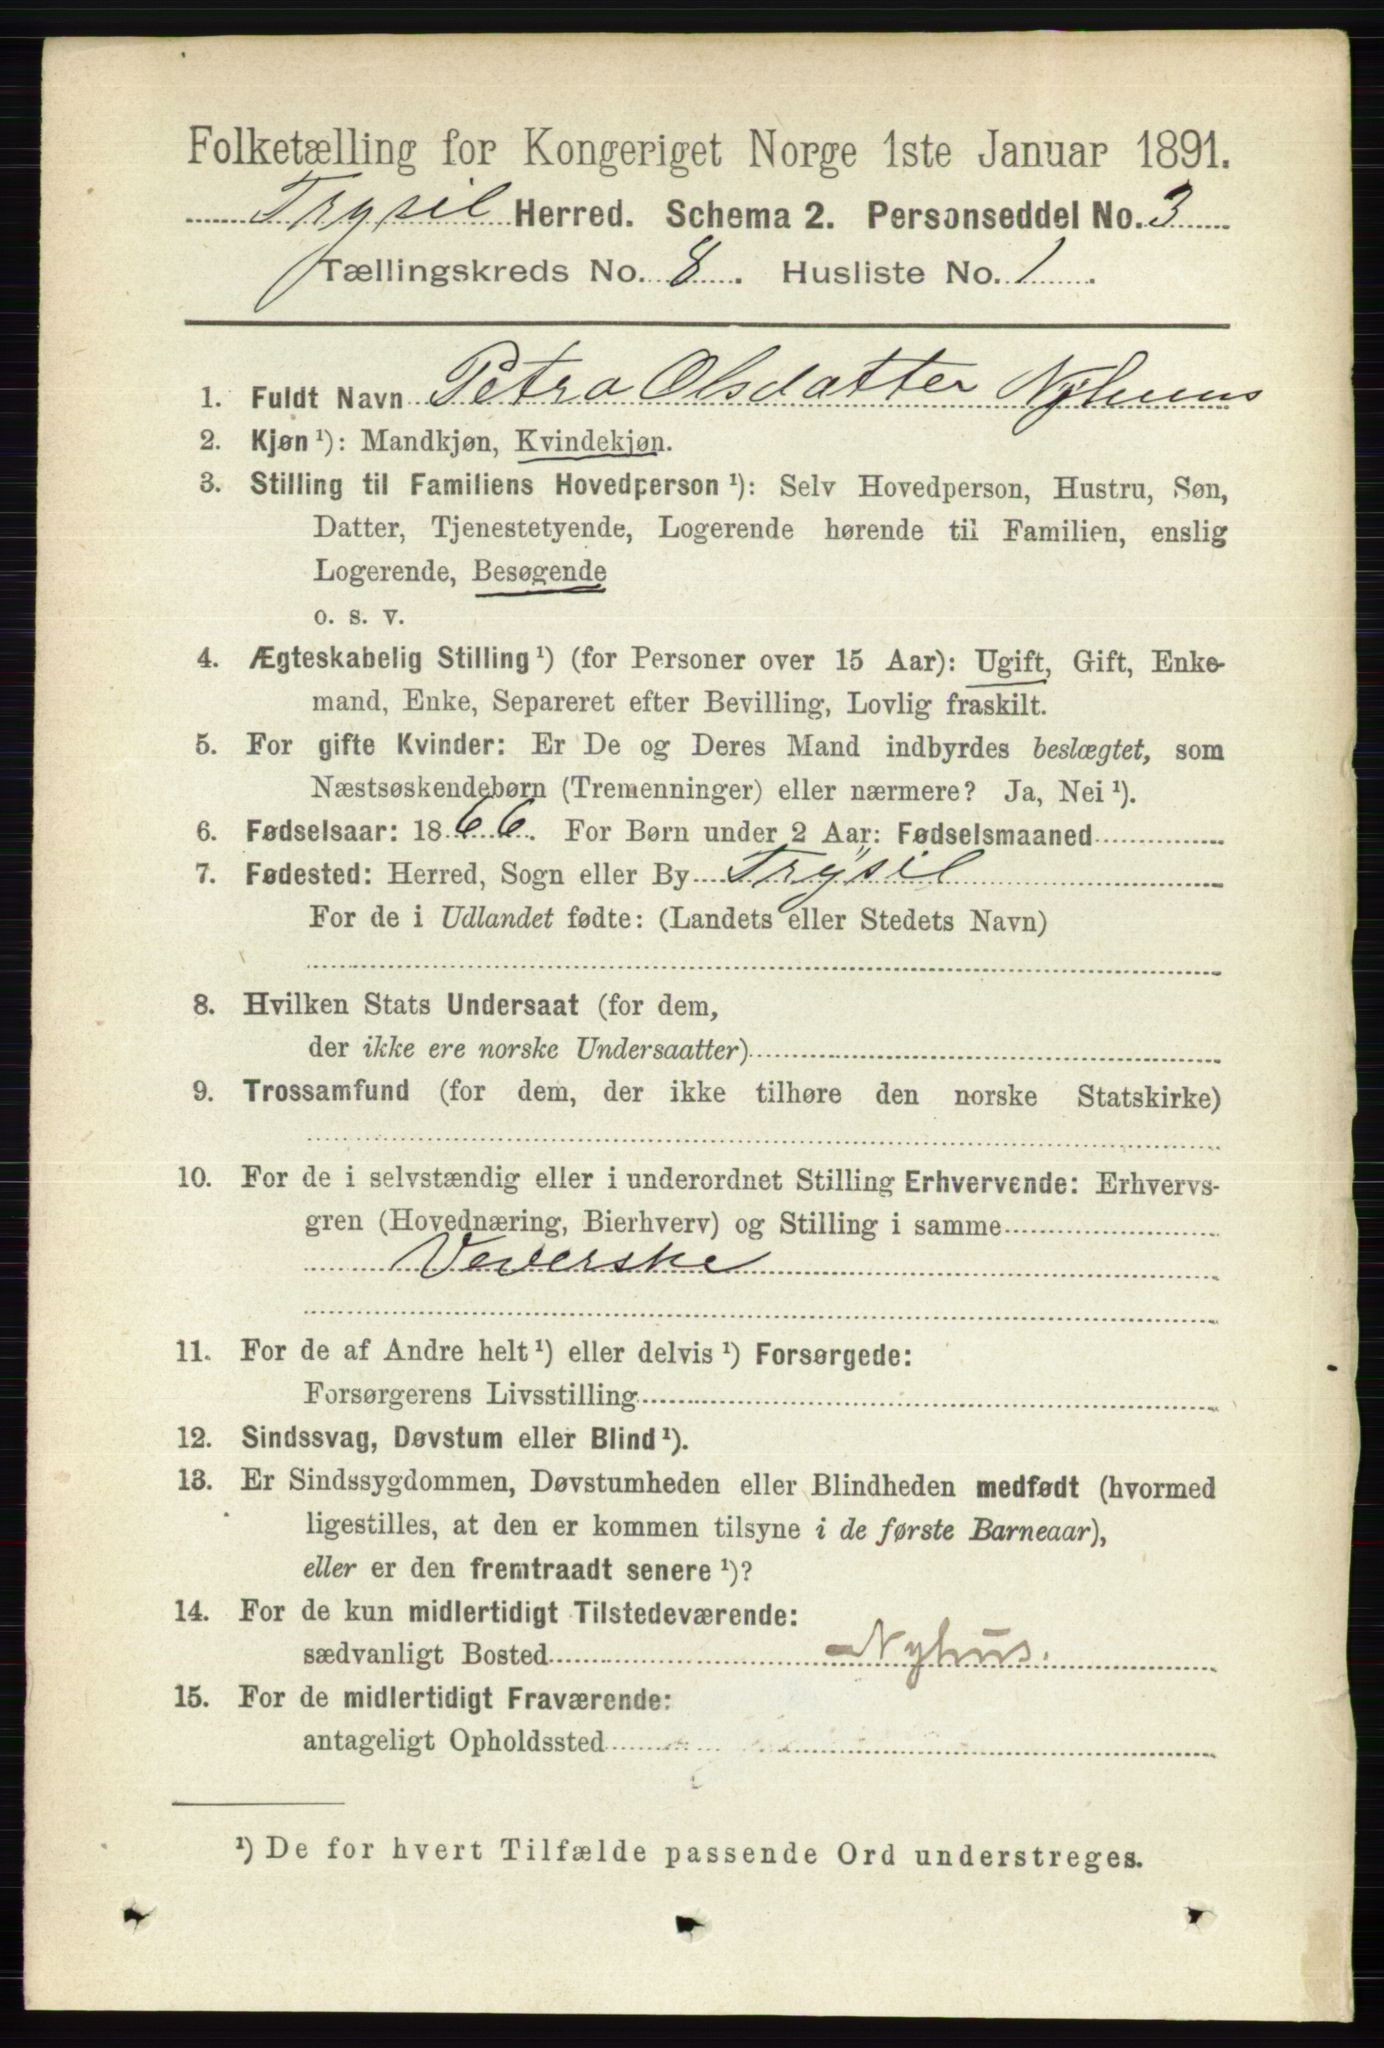 Folketælling for Kongeriget Norge 1ste Januar 1891.
Trysil Herred. Schema 2. Personseddel No. 3
Tællingskreds No. 8. Husliste No. 1.
1. Fuldt Navn Petra Olsdatter Nyhuus
2. Kjøn ¹): Mandkjøn, Kvindekjøn.
3. Stilling til Familiens Hovedperson ¹): Selv Hovedperson, Hustru, Søn,
Datter, Tjenestetyende, Logerende hørende til Familien, enslig
Logerende, Besøgende
o. s. v.
4. Ægteskabelig Stilling ¹) (for Personer over 15 Aar): Ugift, Gift, Enke-
mand, Enke, Separeret efter Bevilling, Lovlig fraskilt.
5. For gifte Kvinder: Er De og Deres Mand indbyrdes beslægtet, som
Næstsøskendebørn (Tremenninger) eller nærmere? Ja, Nei ¹).
6. Fødselsaar: 1866. For Børn under 2 Aar: Fødselsmaaned
7. Fødested: Herred, Sogn eller By Trysil
For de i Udlandet fødte: (Landets eller Stedets Navn)
8. Hvilken Stats Undersaat (for dem,
der ikke ere norske Undersaatter)
9. Trossamfund (for dem, der ikke tilhøre den norske Statskirke)
10. For de i selvstændig eller i underordnet Stilling Erhvervende: Erhvervs-
gren (Hovednæring, Bierhverv) og Stilling i samme
Veverske
11. For de af Andre helt ¹) eller delvis ¹) Forsørgede:
Forsørgerens Livsstilling
12. Sindssvag, Døvstum eller Blind ¹).
13. Er Sindssygdommen, Døvstumheden eller Blindheden medfødt (hvormed
ligestilles, at den er kommen tilsyne i de første Barneaar),
eller er den fremtraadt senere ¹)?
14. For de kun midlertidigt Tilstedeværende:
sædvanligt Bosted Nyhus.
15. For de midlertidigt Fraværende:
antageligt Opholdssted
¹) De for hvert Tilfælde passende Ord understreges.